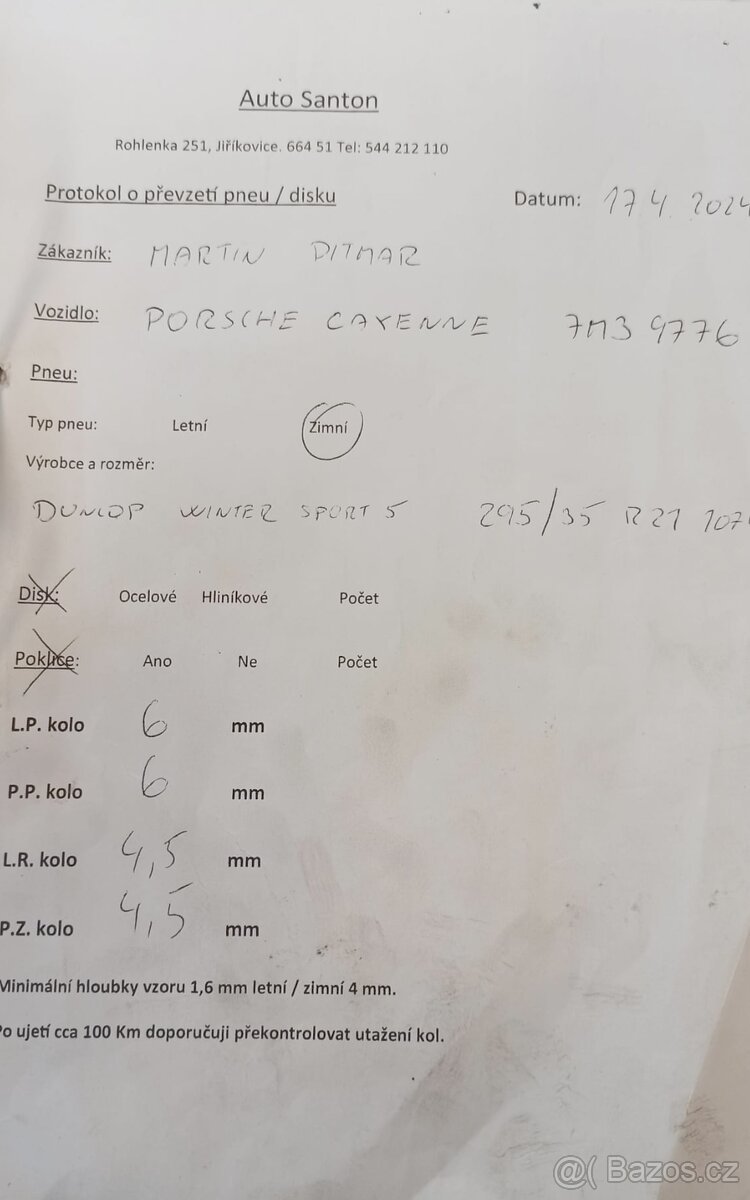 Auto Santon
Rohlenka 251, Jiříkovice. 664 51 Tel: 544 212 110
Protokol o převzetí pneu / disku Datum: 17 4. 2024
Zákazník: MARTIN DITMAR
Vozidlo: PORSCHE CAYENNE 7M3 9776
Pneu:
Typ pneu: Letní Zimní
Výrobce a rozměr:
DUNLOP WINTER SPORT 5 295/35 R21 107
Disk: Ocelové Hliníkové Počet
Poklice: Ano Ne Počet
L.P. kolo 6 mm
P.P. kolo 6 mm
L.R. kolo 4,5 mm
P.Z. kolo 4,5 mm
Minimální hloubky vzoru 1,6 mm letní / zimní 4 mm.
Po ujetí cca 100 Km doporučuji překontrolovat utažení kol.
@( Bazos.cz